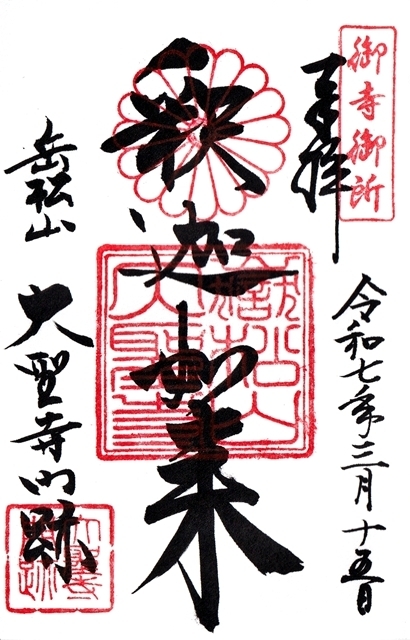 御寺御所
奉拝
令和七年三月十五日
釈迦如来
岳松山
大聖寺門跡